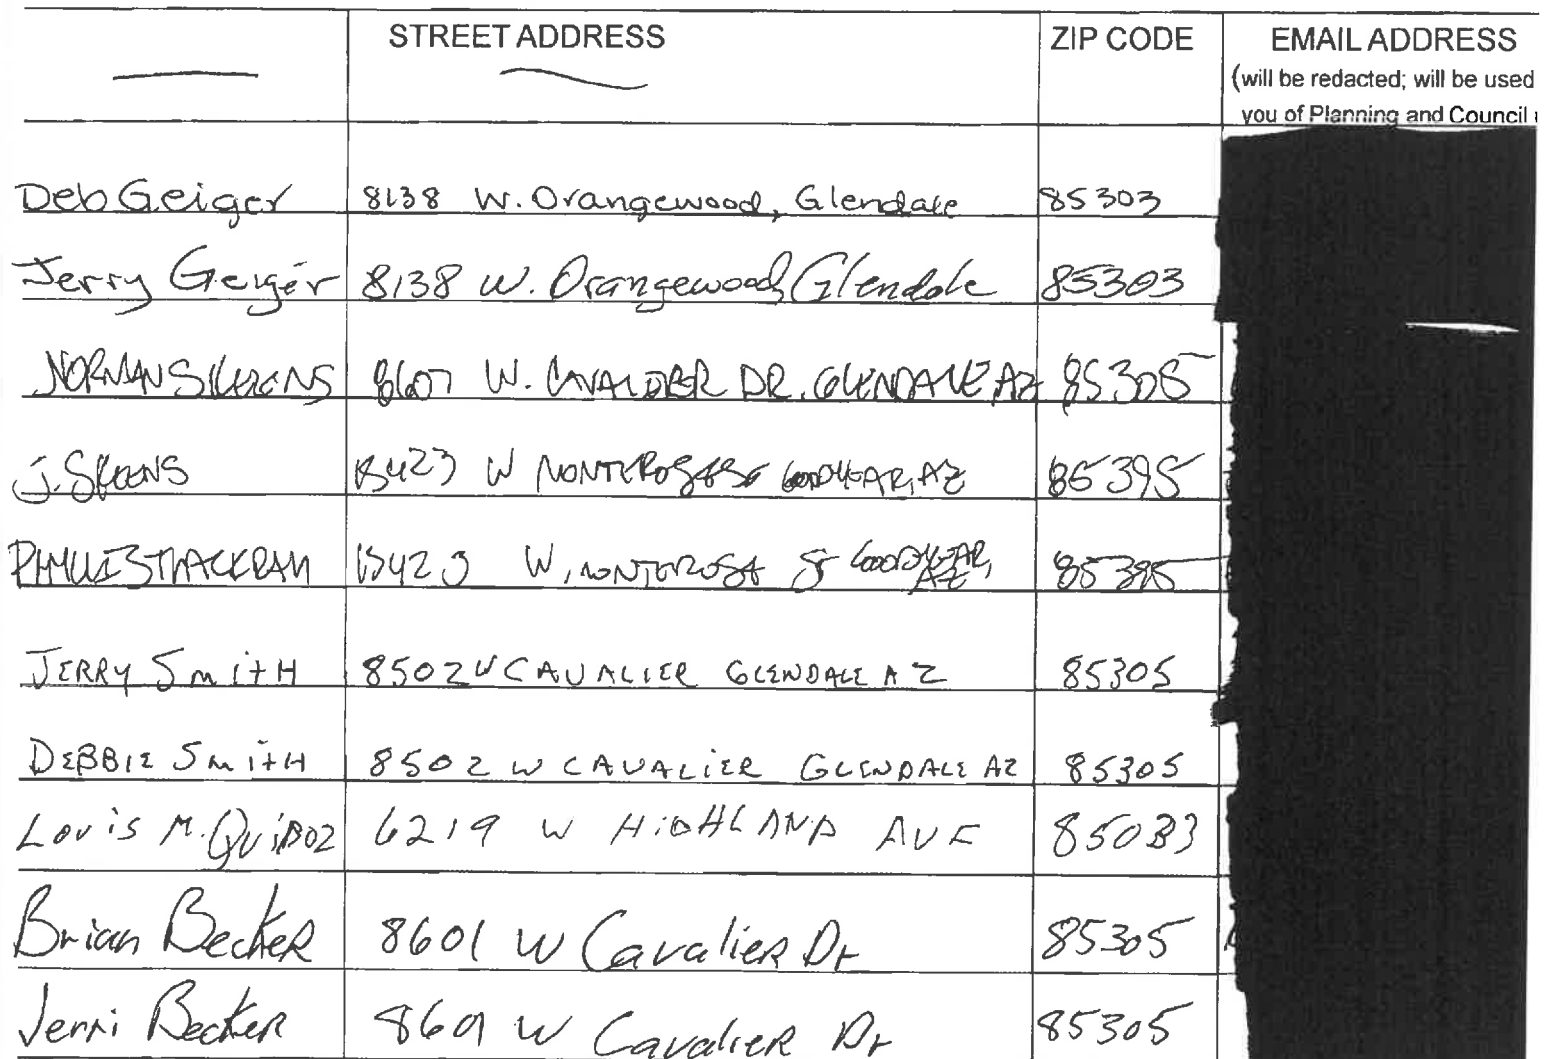 STREET ADDRESS ZIP CODE EMAIL ADDRESS
(will be redacted; will be used
you of Planning and Council
Deb Geiger 8138 W. Orangewood, Glendale 85303
Jerry Geiger 8138 W. Orangewood, Glendale 85303
NORMAN 8607 W. CAVALIER DR. GLENDALE AZ 85305
J. 15423 W MONTEROSA ST GOODYEAR, AZ 85395
PHYLLIS THACKRAH 15423 W. MONTEROSA ST GOODYEAR, AZ 85395
JERRY SmitH 8502 W CAVALIER GLENDALE AZ 85305
DEBBIE SmitH 8502 W CAVALIER GLENDALE AZ 85305
Louis M. QUiROZ 6219 W HiGHLAND AVE 85033
Brian BeckeR 8601 W CavalieR Dr 85305
Jerri BeckeR 8601 W CavalieR Dr 85305